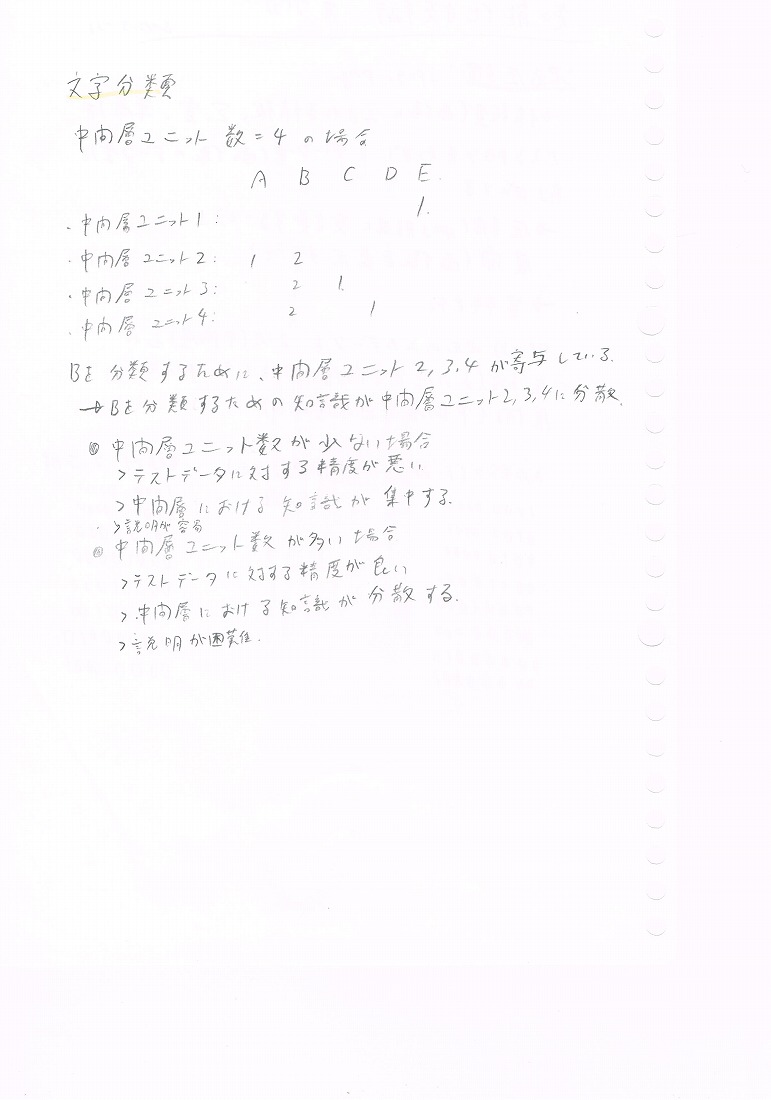 文字分類
中間層ユニット数=4の場合
A B C D E.
・中間層ユニット1: 1.
・中間層ユニット2: 1 2
・中間層ユニット3: 2 1.
・中間層ユニット4: 2 1
Bを分類するために、中間層ユニット2,3,4が寄与している.
→Bを分類するための知識が中間層ユニット2,3,4に分散.
◎中間層ユニット数が少ない場合
>テストデータに対する精度が悪い
>中間層における知識が集中する.
>説明が容易
◎中間層ユニット数が多い場合
>テストデータに対する精度が良い
>中間層における知識が分散する.
>説明が困難.